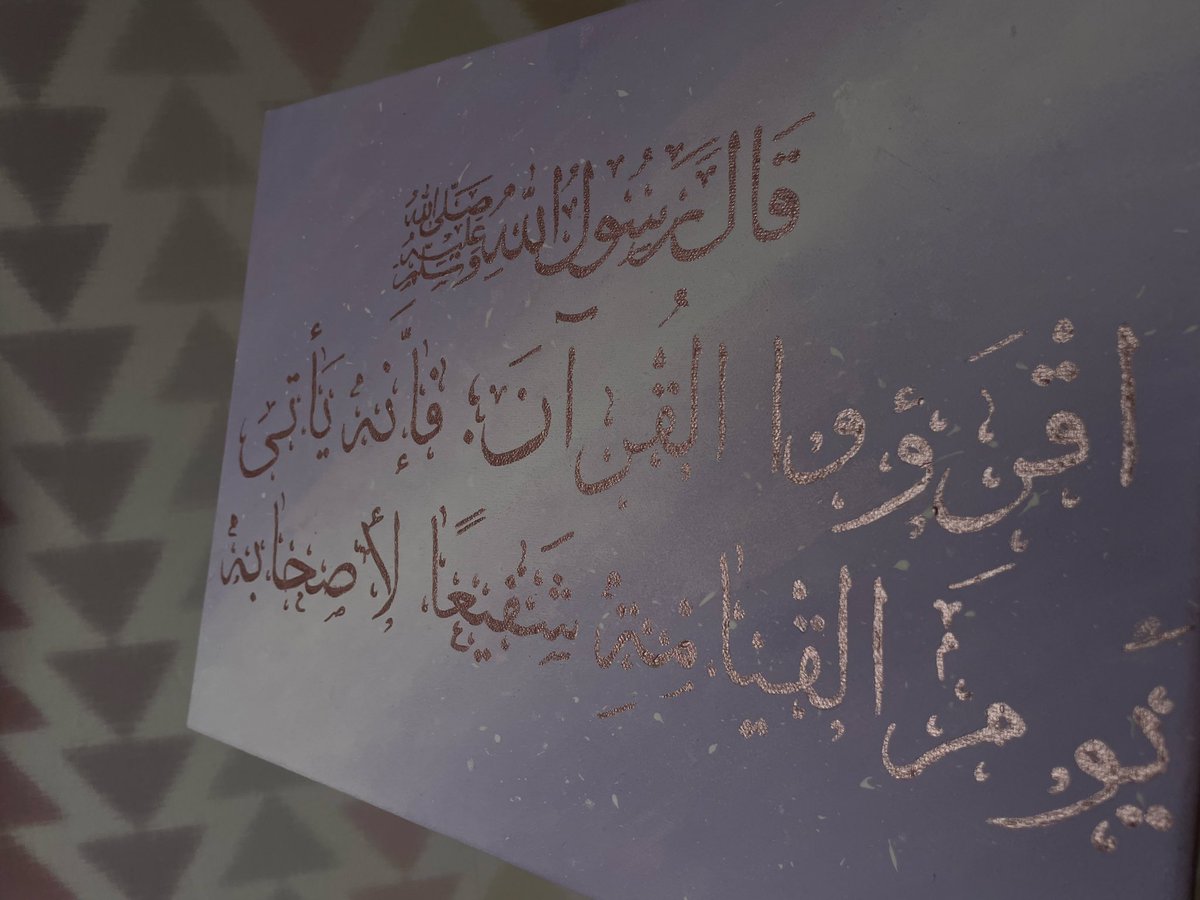 قَالَ رَسُولُ اللّٰهِ صَلَّى اللّٰهُ عَلَيْهِ وَسَلَّمَ
اقْرَؤُوا الْقُرْآنَ؛ فَإِنَّهُ يَأْتِي
يَوْمَ الْقِيَامَةِ شَفِيعًا لِأَصْحَابِهِ